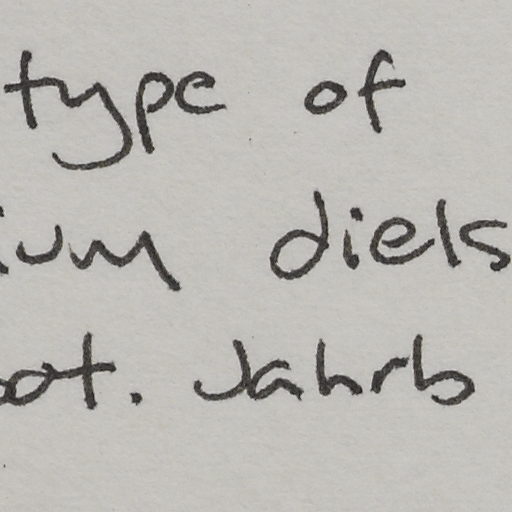 type of
ium diels
bot. Jahrb